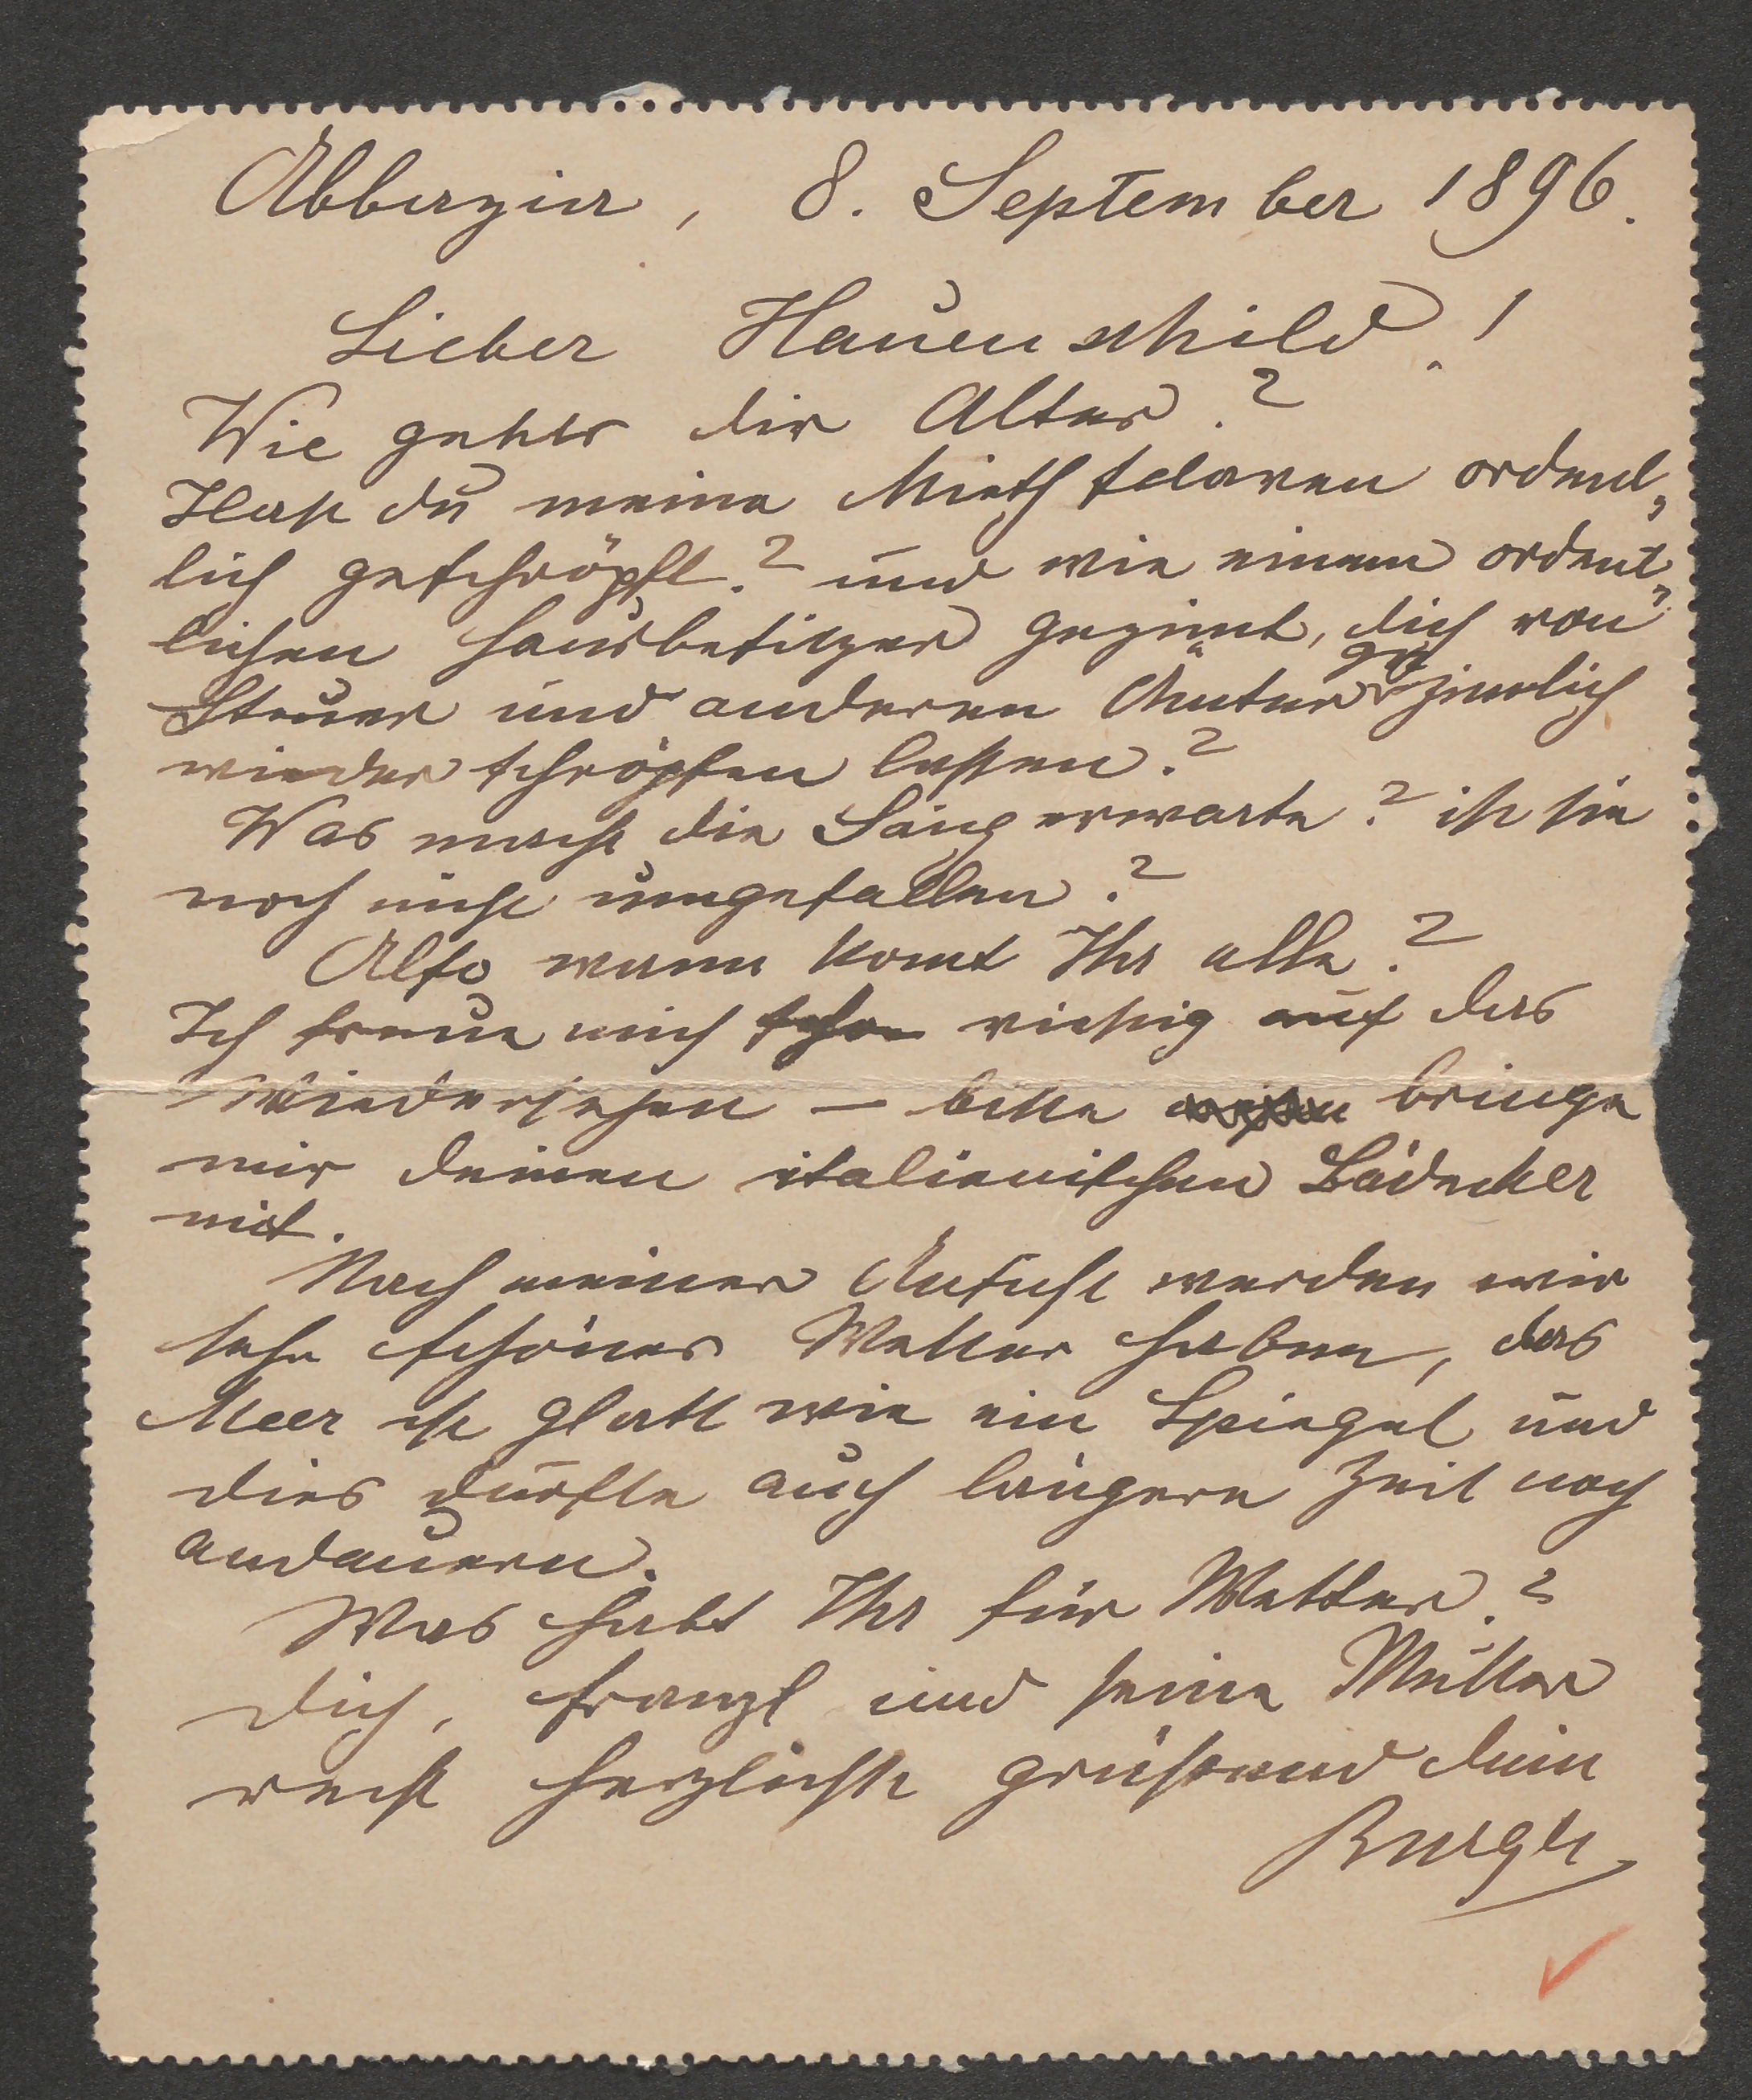 Abbazia, 8. September 1896.
Lieber Hauenschild!
Wie gehts dir Alter?
Hast du meine Miethsclaven ordent-
lich geschröpft? und wie einem ordent-
lichen Hausbesitzer geziemt, dich von
Steuer und anderen Ämter geziemlich
wieder schröpfen lassen?
Was macht die Saugerwarte? ist sie
noch nicht umgefallen?
Also wann komt Ihr alle?
Ich freue mich schon richtig auf das
Wiedersehen – bitte bringe
mir deinen italienischen Bädecker
mit.
Nach meiner Ansicht werden wir
sehr schönes Wetter haben, das
Meer ist glatt wie ein Spiegel und
dies dürfte auch längere Zeit noch
andauern.
Was habt Ihr für Wetter?
Dich, Franzl und seine Mutter
recht herzlichst grüssend dein